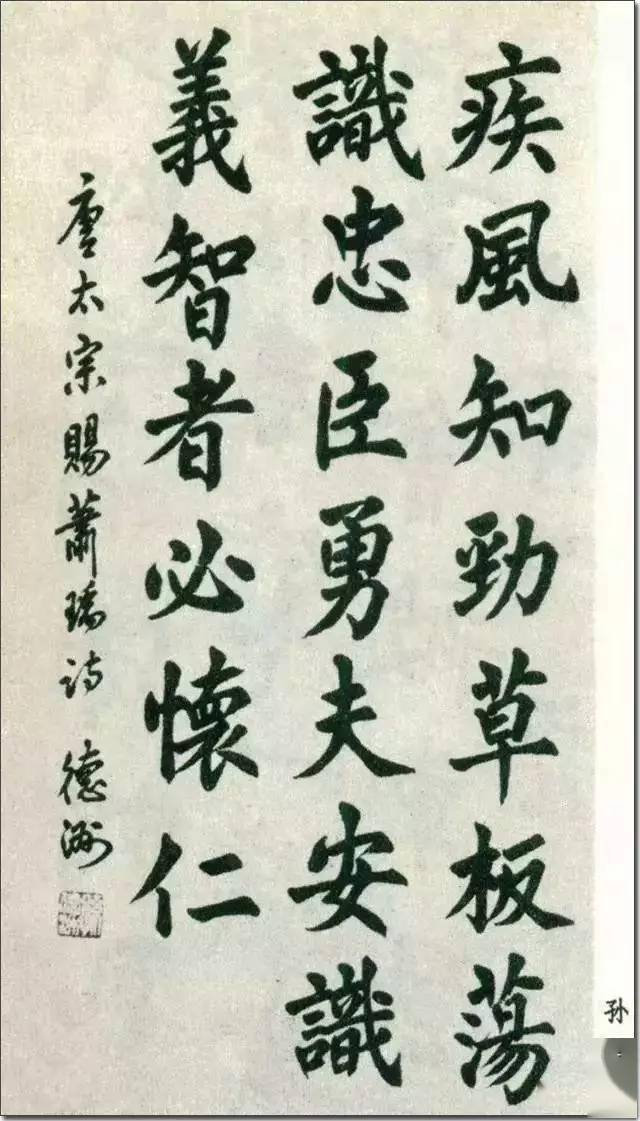 疾風知勁草板蕩
識忠臣勇夫安識
義智者必懷仁
唐太宗賜蕭瑀詩 德洲
孙